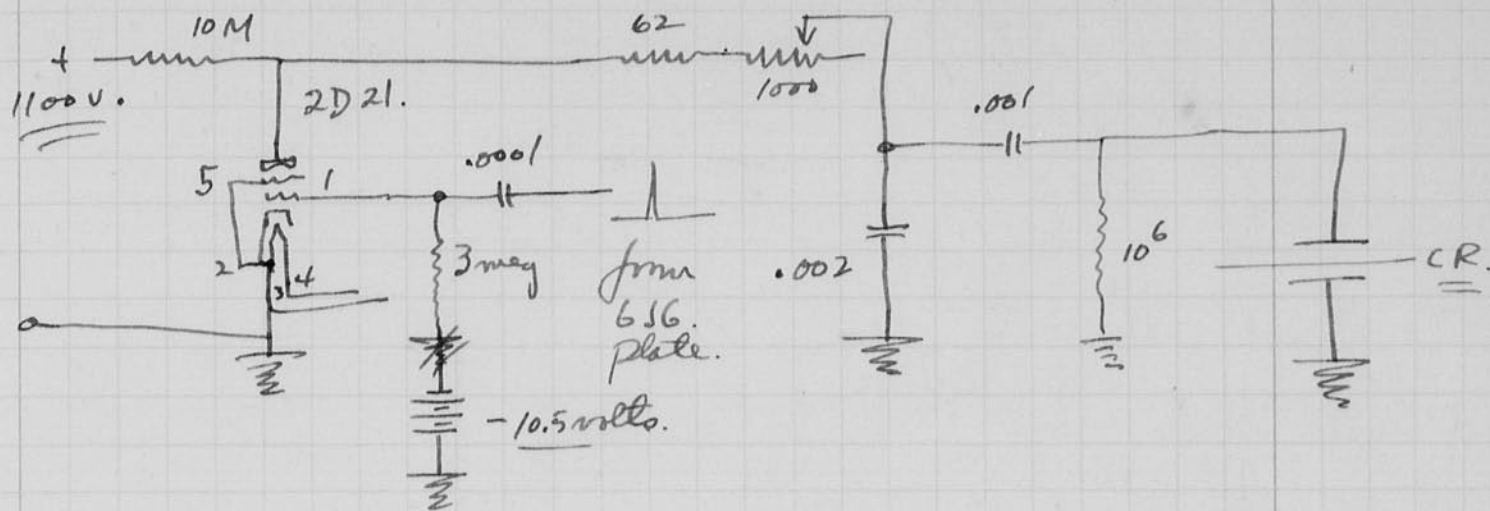 10M
62
+
1100 V.
2D21.
1000
.001
.0001
5
1
2
3
4
3 meg
from
6J6.
plate.
.002
10⁶
CR.
-10.5 volts.